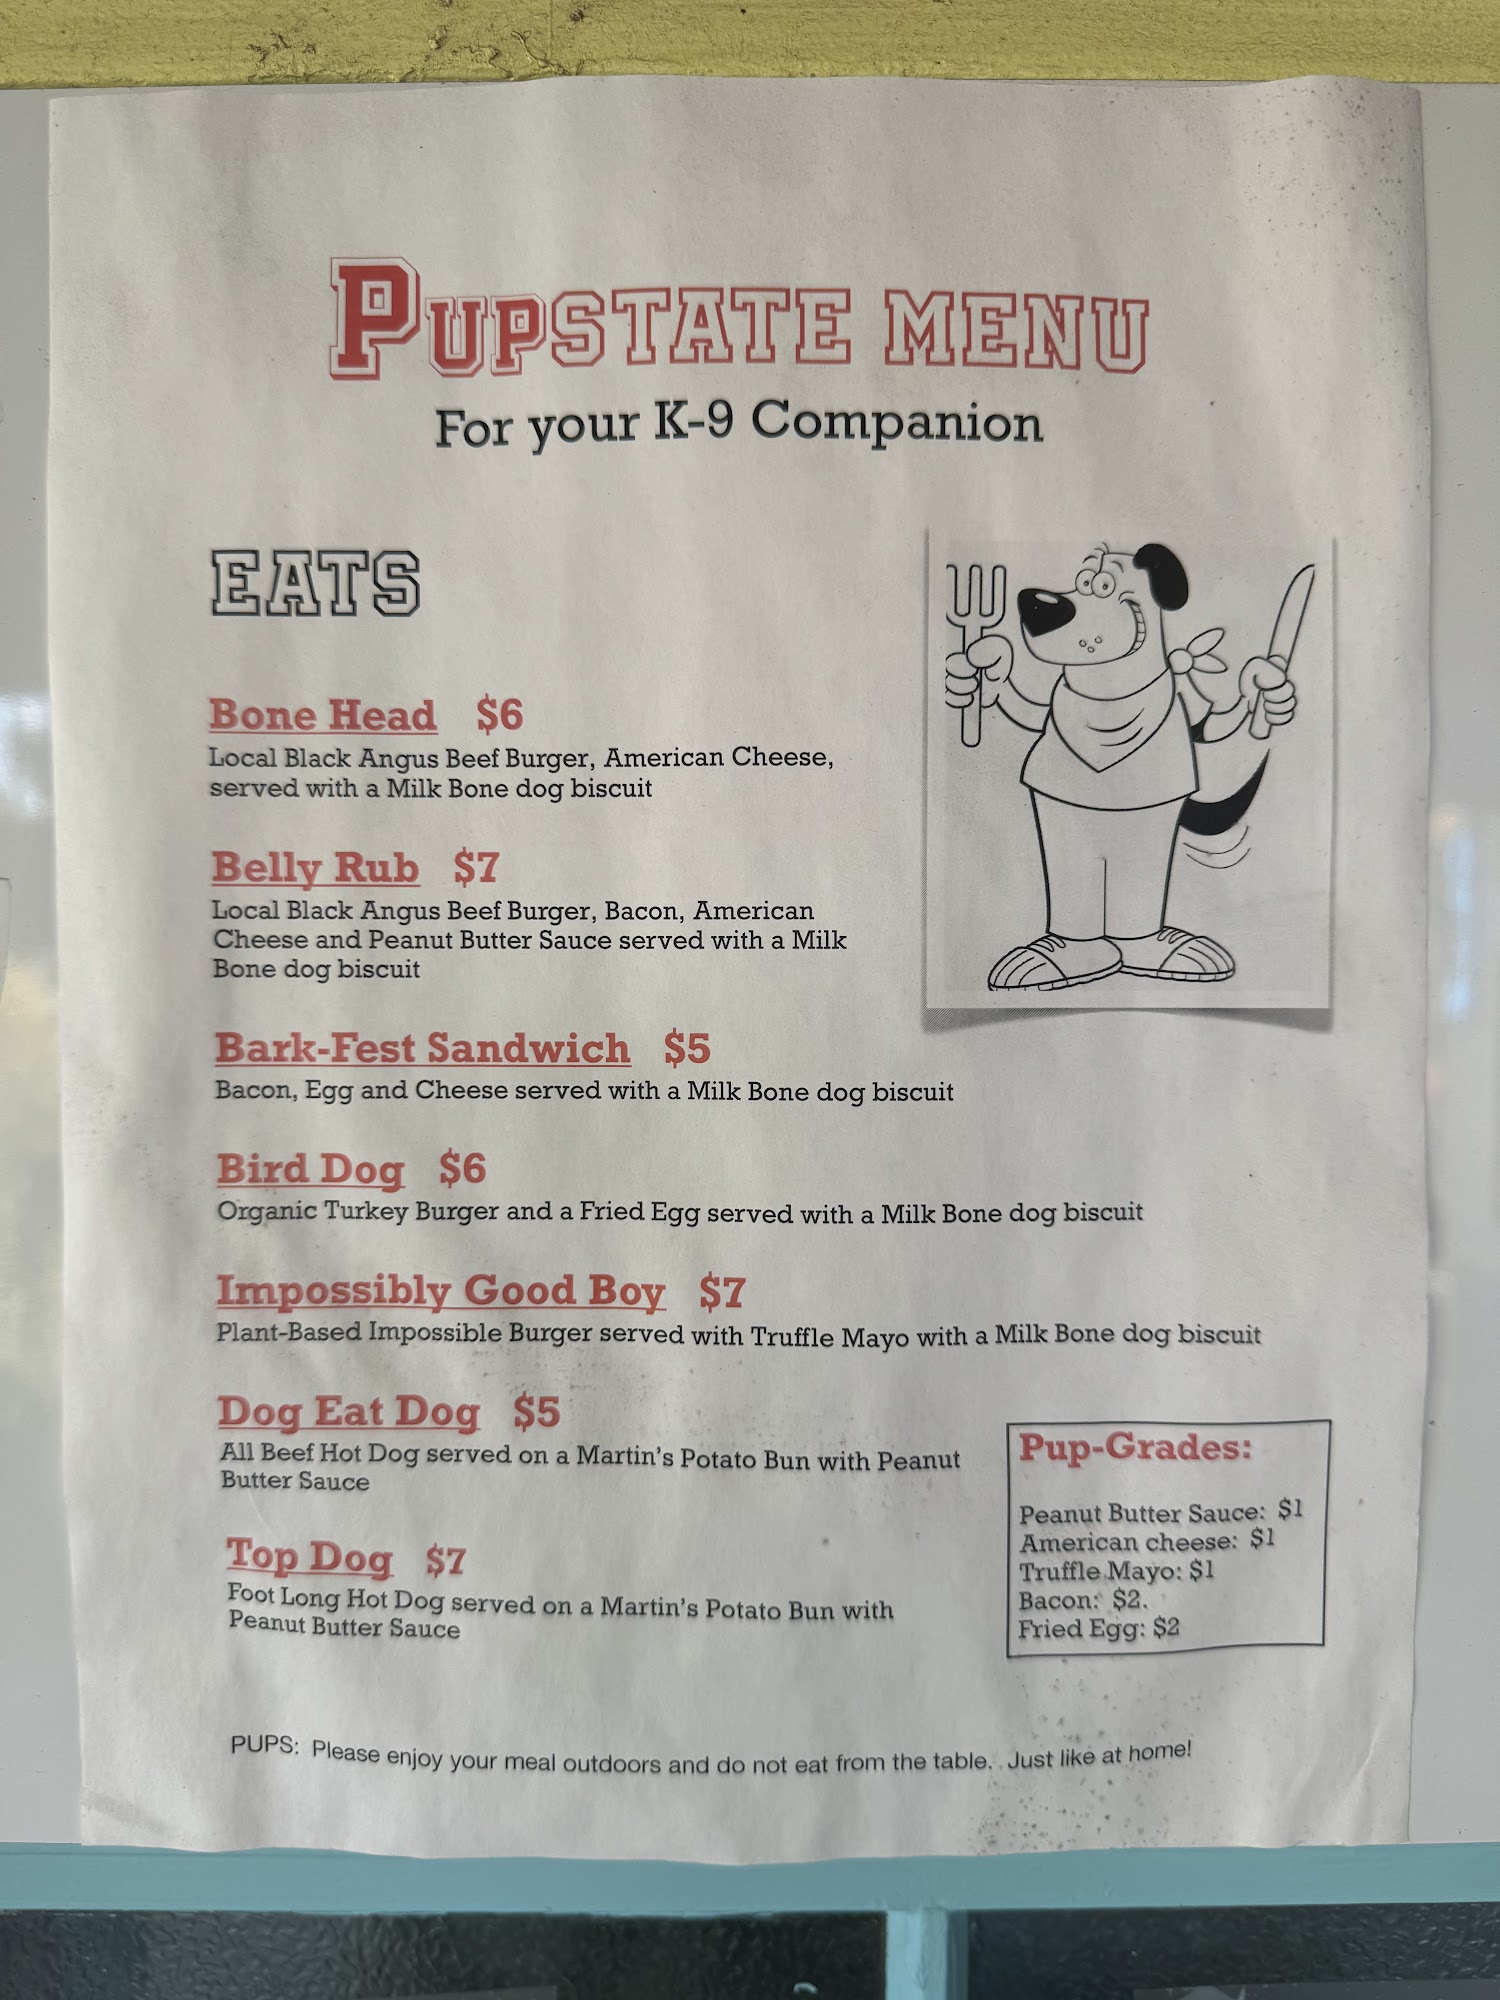 PUPSTATE MENU
For your K-9 Companion
EATS
Bone Head $6
Local Black Angus Beef Burger, American Cheese,
served with a Milk Bone dog biscuit
Belly Rub $7
Local Black Angus Beef Burger, Bacon, American
Cheese and Peanut Butter Sauce served with a Milk
Bone dog biscuit
Bark-Fest Sandwich $5
Bacon, Egg and Cheese served with a Milk Bone dog biscuit
Bird Dog $6
Organic Turkey Burger and a Fried Egg served with a Milk Bone dog biscuit
Impossibly Good Boy $7
Plant-Based Impossible Burger served with Truffle Mayo with a Milk Bone dog biscuit
Dog Eat Dog $5
All Beef Hot Dog served on a Martin's Potato Bun with Peanut
Butter Sauce
Top Dog $7
Foot Long Hot Dog served on a Martin's Potato Bun with
Peanut Butter Sauce
Pup-Grades:
Peanut Butter Sauce: $1
American cheese: $1
Truffle Mayo: $1
Bacon: $2.
Fried Egg: $2
PUPS: Please enjoy your meal outdoors and do not eat from the table. Just like at home!